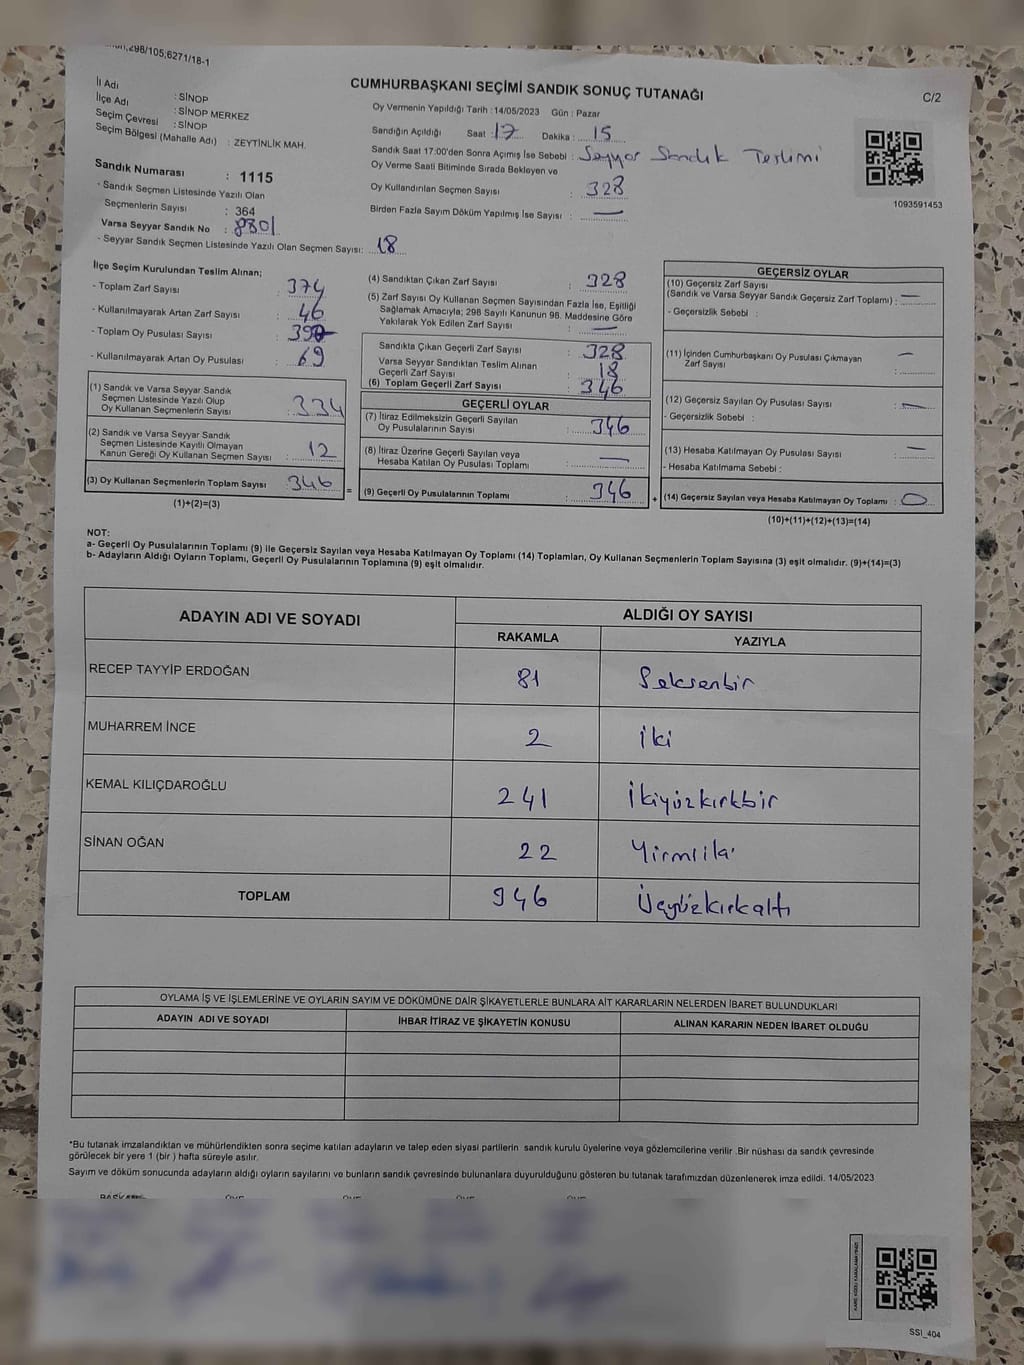 298/105,6271/18-1
CUMHURBAŞKANI SEÇİMİ SANDIK SONUÇ TUTANAĞI
C/2
İl Adı : SİNOP
İlçe Adı : SİNOP MERKEZ
Seçim Çevresi : SİNOP
Seçim Bölgesi (Mahalle Adı) : ZEYTİNLİK MAH.
Oy Vermenin Yapıldığı Tarih : 14/05/2023 Gün : Pazar
Sandığın Açıldığı Saat : 17 Dakika : 15
Sandık Saat 17:00'den Sonra Açımış İse Sebebi : Seyyar Sandık Teslimi
Oy Verme Saati Bitiminde Sırada Bekleyen ve
Oy Kullandırılan Seçmen Sayısı : 328
Birden Fazla Sayım Döküm Yapılmış İse Sayısı : —
1093591453
Sandık Numarası : 1115
- Sandık Seçmen Listesinde Yazılı Olan
Seçmenlerin Sayısı : 364
Varsa Seyyar Sandık No : 8801
- Seyyar Sandık Seçmen Listesinde Yazılı Olan Seçmen Sayısı: 18
İlçe Seçim Kurulundan Teslim Alınan;
- Toplam Zarf Sayısı : 374
- Kullanılmayarak Artan Zarf Sayısı : 46
- Toplam Oy Pusulası Sayısı :
- Kullanılmayarak Artan Oy Pusulası : 69
(1) Sandık ve Varsa Seyyar Sandık
Seçmen Listesinde Yazılı Olup
Oy Kullanan Seçmenlerin Sayısı : 334
(2) Sandık ve Varsa Seyyar Sandık
Seçmen Listesinde Kayıtlı Olmayan
Kanun Gereği Oy Kullanan Seçmen Sayısı : 12
(3) Oy Kullanan Seçmenlerin Toplam Sayısı : 346 =
(1)+(2)=(3)
(4) Sandıktan Çıkan Zarf Sayısı : 328
(5) Zarf Sayısı Oy Kullanan Seçmen Sayısından Fazla İse, Eşitliği
Sağlamak Amacıyla; 298 Sayılı Kanunun 98. Maddesine Göre
Yakılarak Yok Edilen Zarf Sayısı : —
Sandıkta Çıkan Geçerli Zarf Sayısı : 328
Varsa Seyyar Sandıktan Teslim Alınan
Geçerli Zarf Sayısı : 18
(6) Toplam Geçerli Zarf Sayısı : 346
GEÇERLİ OYLAR
(7) İtiraz Edilmeksizin Geçerli Sayılan
Oy Pusulalarının Sayısı : 346
(8) İtiraz Üzerine Geçerli Sayılan veya
Hesaba Katılan Oy Pusulası Toplamı : —
(9) Geçerli Oy Pusulalarının Toplamı : 346 +
GEÇERSİZ OYLAR
(10) Geçersiz Zarf Sayısı
(Sandık ve Varsa Seyyar Sandık Geçersiz Zarf Toplamı) : —
- Geçersizlik Sebebi :
(11) İçinden Cumhurbaşkanı Oy Pusulası Çıkmayan
Zarf Sayısı : —
(12) Geçersiz Sayılan Oy Pusulası Sayısı : —
- Geçersizlik Sebebi :
(13) Hesaba Katılmayan Oy Pusulası Sayısı : —
- Hesaba Katılmama Sebebi :
(14) Geçersiz Sayılan veya Hesaba Katılmayan Oy Toplamı : 0
(10)+(11)+(12)+(13)=(14)
NOT:
a- Geçerli Oy Pusulalarının Toplamı (9) ile Geçersiz Sayılan veya Hesaba Katılmayan Oy Toplamı (14) Toplamları, Oy Kullanan Seçmenlerin Toplam Sayısına (3) eşit olmalıdır. (9)+(14)=(3)
b- Adayların Aldığı Oyların Toplamı, Geçerli Oy Pusulalarının Toplamına (9) eşit olmalıdır.
ADAYIN ADI VE SOYADI ALDIĞI OY SAYISI
RAKAMLA YAZIYLA
RECEP TAYYİP ERDOĞAN 81 Seksenbir
MUHARREM İNCE 2 İki
KEMAL KILIÇDAROĞLU 241 İkiyüzkırkbir
SİNAN OĞAN 22 Yirmiiki
TOPLAM 346 Üçyüzkırkaltı
OYLAMA İŞ VE İŞLEMLERİNE VE OYLARIN SAYIM VE DÖKÜMÜNE DAİR ŞİKAYETLERLE BUNLARA AİT KARARLARIN NELERDEN İBARET BULUNDUKLARI
ADAYIN ADI VE SOYADI İHBAR İTİRAZ VE ŞİKAYETİN KONUSU ALINAN KARARIN NEDEN İBARET OLDUĞU
*Bu tutanak imzalandıktan ve mühürlendikten sonra seçime katılan adayların ve talep eden siyasi partilerin sandık kurulu üyelerine veya gözlemcilerine verilir .Bir nüshası da sandık çevresinde
görülecek bir yere 1 (bir ) hafta süreyle asılır.
Sayım ve döküm sonucunda adayların aldığı oyların sayılarını ve bunların sandık çevresinde bulunanlara duyurulduğunu gösteren bu tutanak tarafımızdan düzenlenerek imza edildi. 14/05/2023
SSI_404